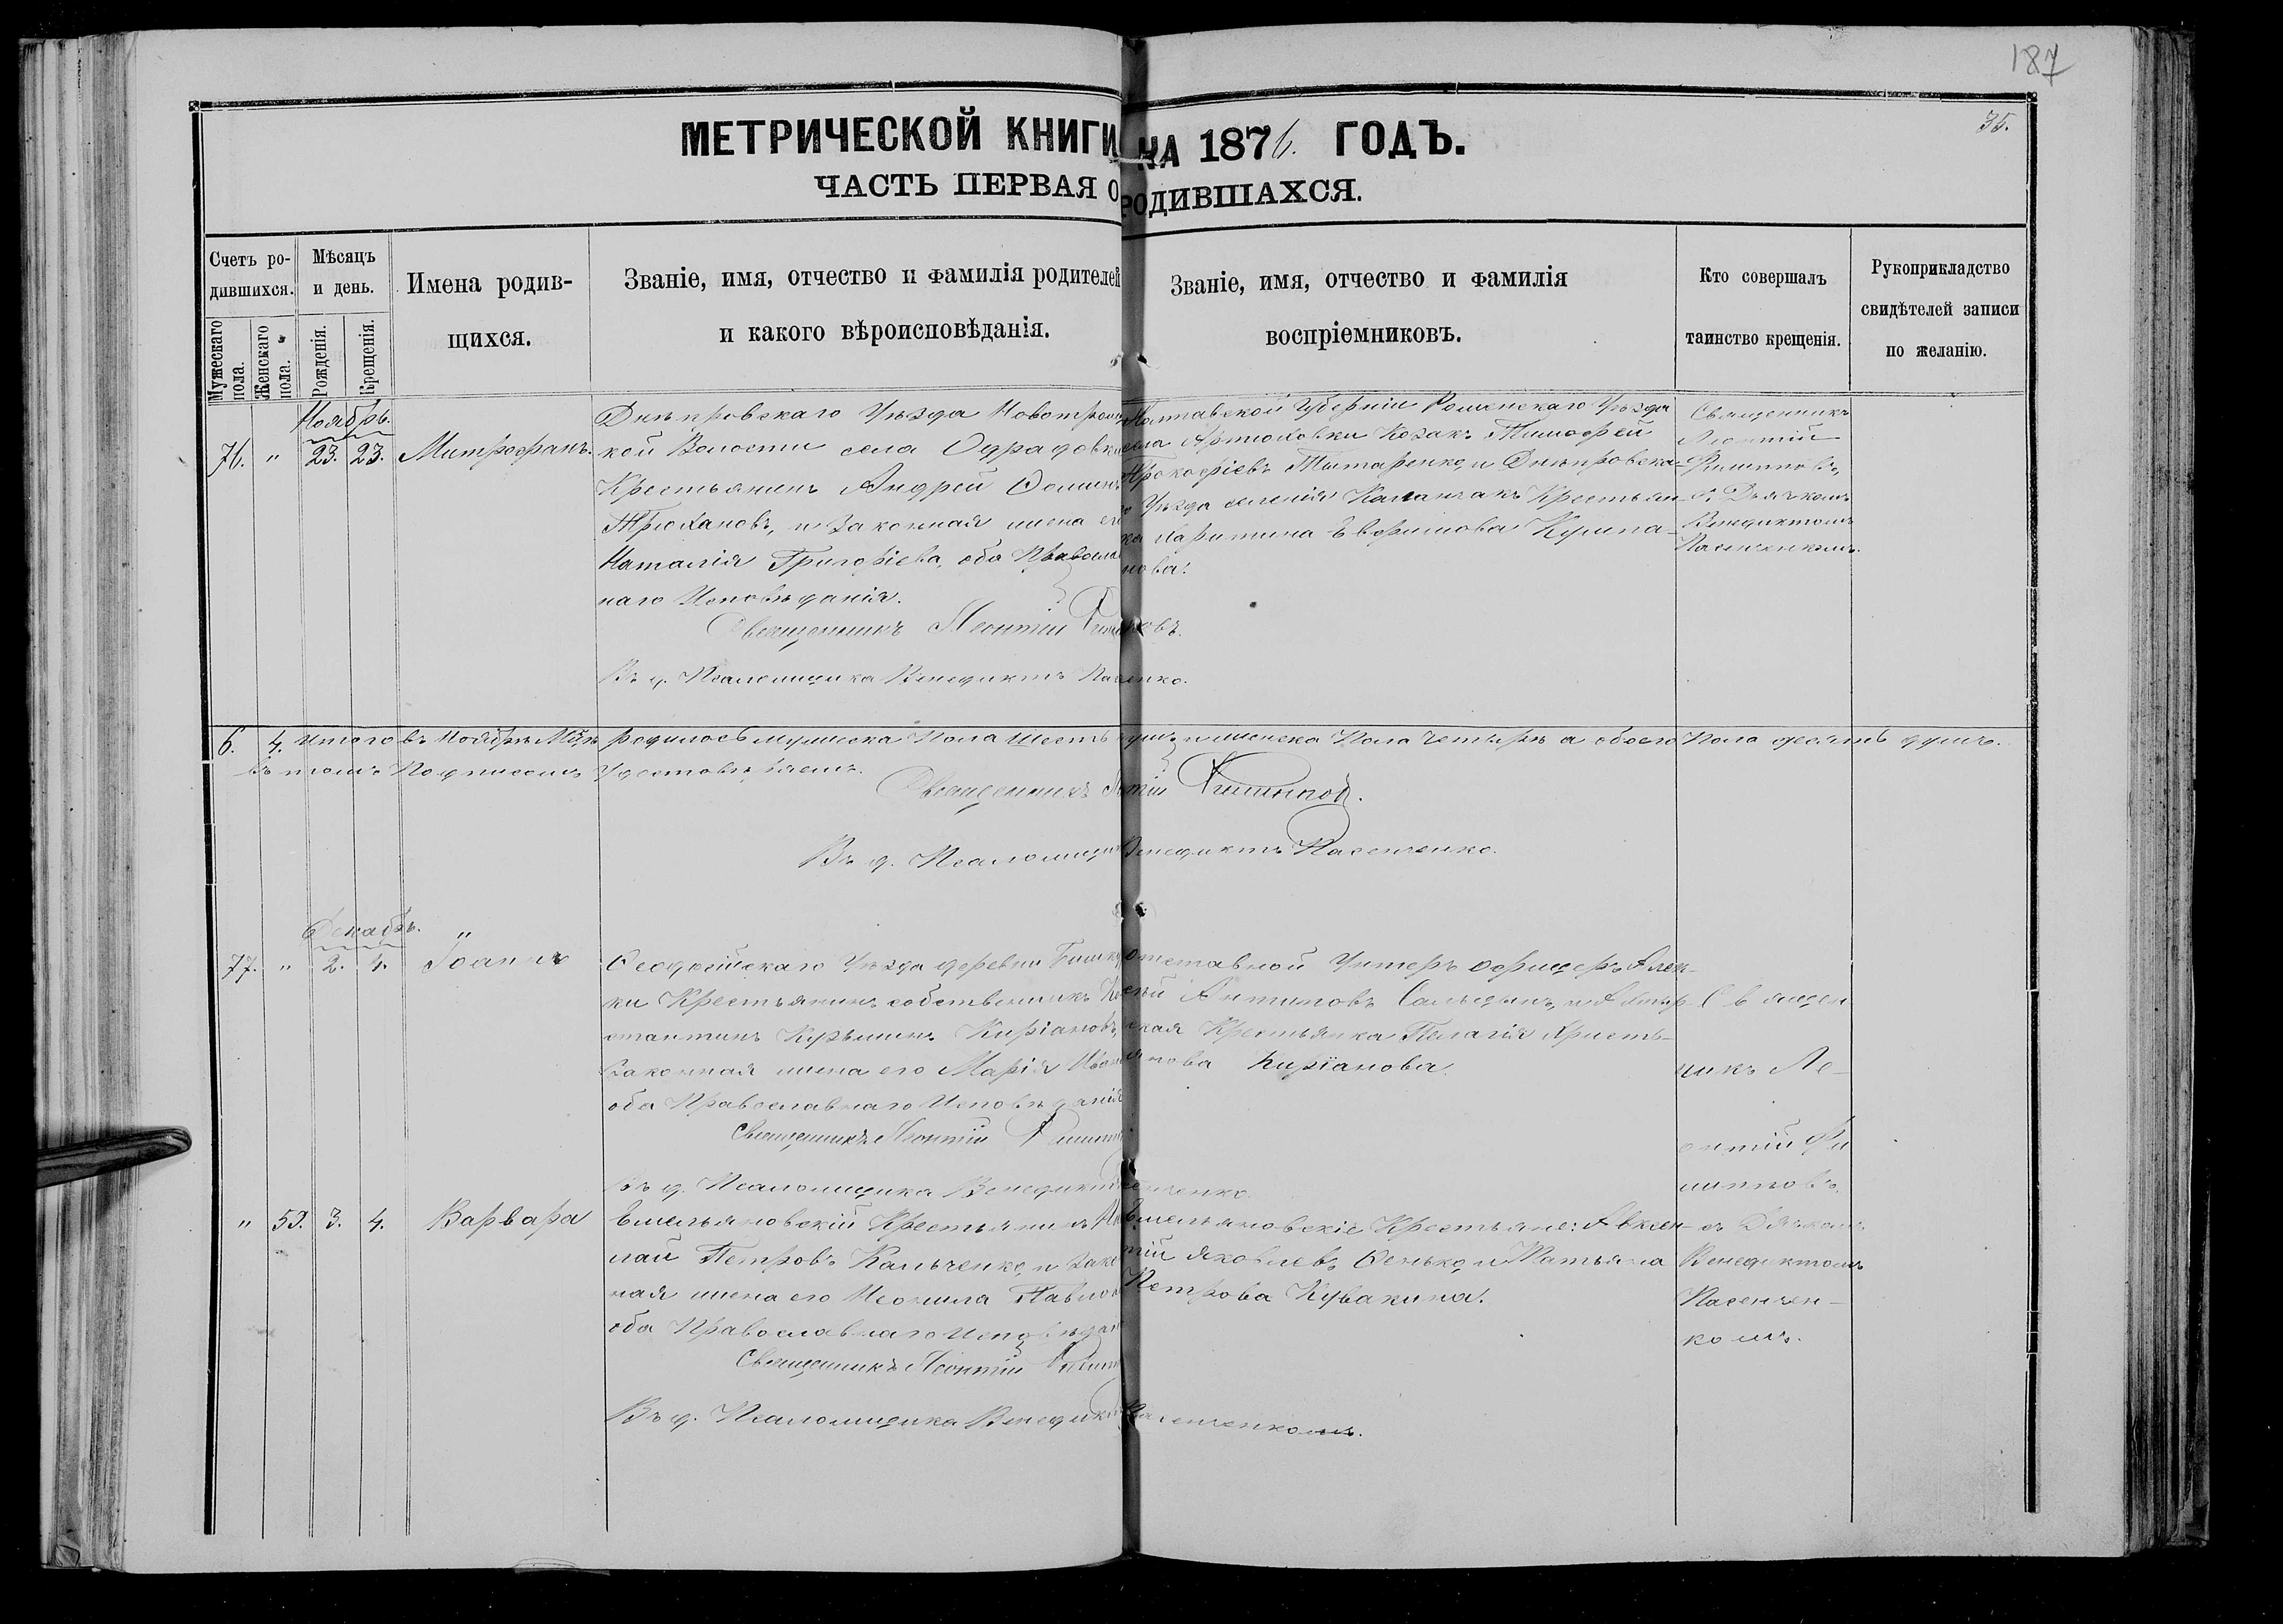 187
35.
МЕТРИЧЕСКОЙ КНИГИ НА 1876. ГОДЪ.
ЧАСТЬ ПЕРВАЯ О РОДИВШАХСЯ.
Счетъ ро-
дившихся.
Мужескаго пола.
Женскаго пола.
Мѣсяцъ
и день.
Рожденія.
Крещенія.
Имена родив-
щихся.
Званіе, имя, отчество и фамилія родителей
и какого вѣроисповѣданія.
Званіе, имя, отчество и фамилія
воспріемниковъ.
Кто совершалъ
таинство крещенія.
Рукоприкладство
свидѣтелей записи
по желанію.
Ноябрь.
76. " 23. 23. Митрофанъ.
Днѣпровскаго Уѣзда
кой Волости села Одрадовки
Крестьянинъ Андрей
Трюхановъ, и законная жена его
Наталія Григоріева, оба Православ
наго Исповѣданія.
Священникъ Леонтій
Въ д. Псаломщика Венедиктъ
Полтавской Губерніи Роменскаго Уѣзда
села Артюховки Козакъ Тимофей
Прокофіевъ Титаренко, и Днѣпровска-
го Уѣзда селенія Каланчакъ Крестьян-
ка Харитина Ефимова
нова.
Священникъ
Леонтій
Филипповъ,
съ Дьячкомъ
Венедиктомъ
Пасенченкомъ.
6. 4. Итого въ Ноябрѣ Мцѣ родилось мужеска Пола Шесть душъ и женска Пола Четыре а обоего Пола десять душъ.
въ томъ Подписомъ Удостовѣряемъ.
Священникъ Леонтій Филипповъ.
Въ д. Псаломщика Венедиктъ Пасенченко.
Декабрь.
77. " 2. 4. Іоаннъ
Ѳеодосійскаго Уѣзда деревни
ки Крестьянинъ собственникъ Кон
стантинъ Кузьминъ Киріановъ,
Законная жена его Марія
оба Православнаго Исповѣданія
Священникъ Леонтій
Въ д. Псаломщика Венедиктъ
отставной Унтеръ офицеръ Алек-
сѣй Антиповъ
кая Крестьянка Пелагія Христь-
янова Киріанова.
Священ
никъ Ле-
онтій Фи
липповъ,
съ Дьячкомъ
Венедиктомъ
Пасенчен-
комъ.
" 59. 3. 4. Варвара
Емельяновскій Крестьянинъ
лай Петровъ Кальченко, и закон
ная жена его Неонила Павлова
оба Православнаго Исповѣдан
Священникъ Леонтій
Въ д. Псаломщика Венедиктъ Пасенченкомъ.
Емельяновскіе Крестьяне: Авксен-
тій Яковлевъ Сенько, и Татьяна
Петрова Кувакина.